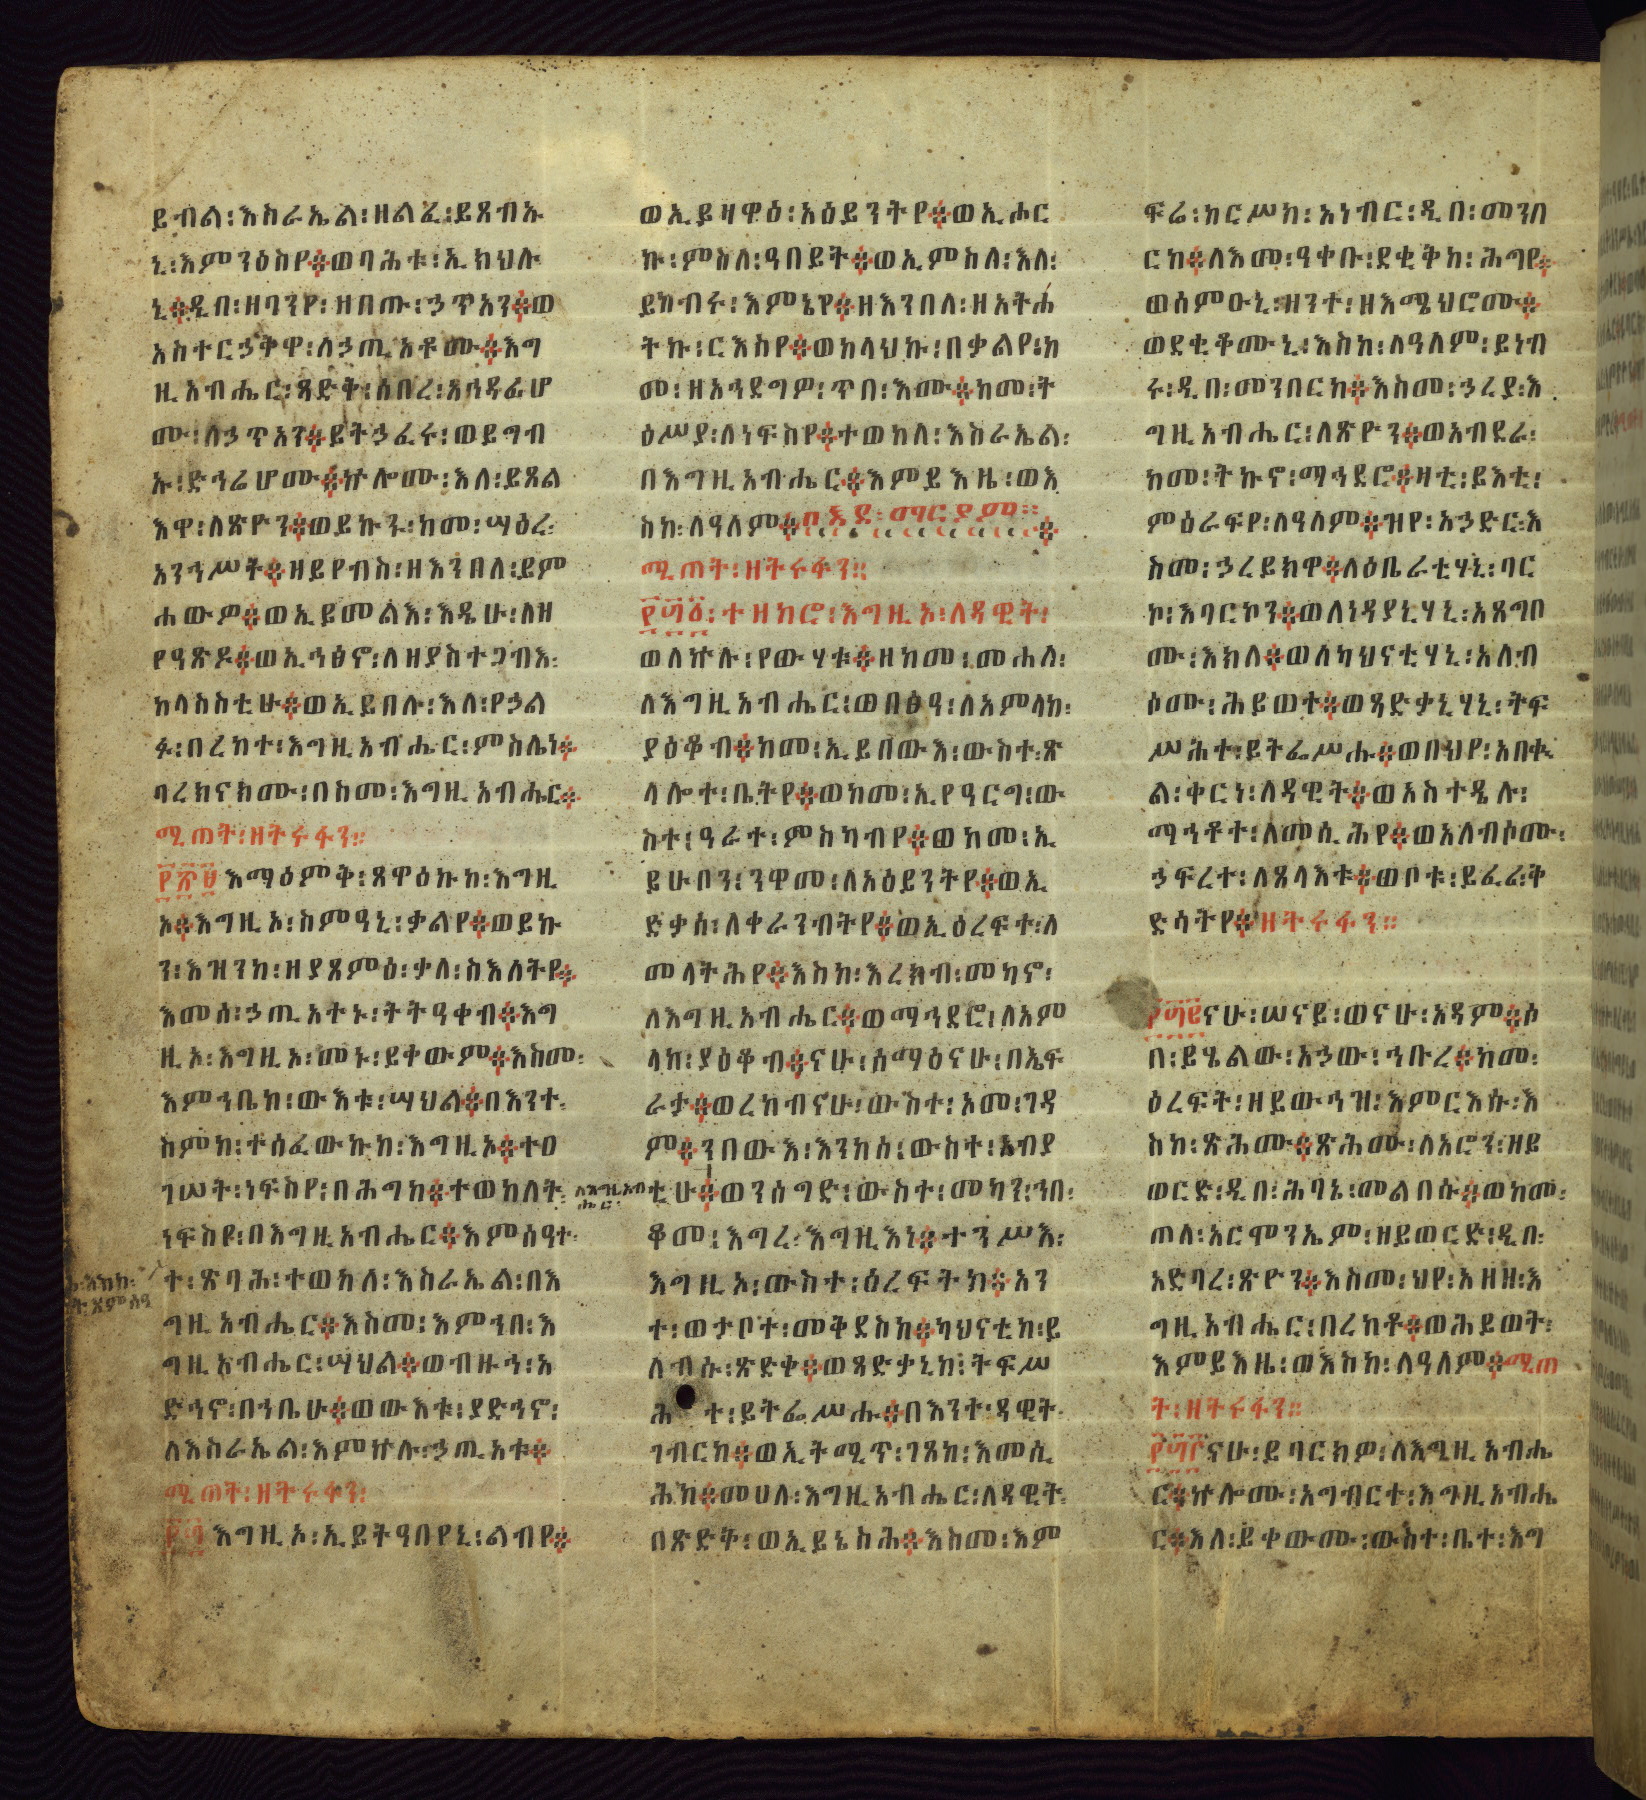 ይብል፡እስራኤል፡ዘልፈ፡ይጸብኡ
ኒ፡እምንዕስየ፨ወባሕቱ፡ኢክህሉ
ኒ፨ዲበ፡ዘባንየ፡ዘበጡ፡ኃጥአን፨ወ
አስተርኃቅዋ፡ለኃጢአቶሙ፨እግ
ዚአብሔር፡ጻድቅ፡ሰበረ፡አኅዳፊሆ
ሙ፡ለኃጥአን፨ይትኃፈሩ፡ወይግብ
ኡ፡ድኅሬሆሙ፨ኵሎሙ፡እለ፡ይጸል
እዋ፡ለጽዮን፨ወይኩኑ፡ከመ፡ሣዕረ፡
አንኅሥት፨ዘይየብስ፡ዘእንበለ፡ይም
ሐውዎ፨ወኢይመልእ፡እዴሁ፡ለዘ
የዓጽዶ፨ወኢኅፅኖ፡ለዘያስተጋብእ፡
ከላስስቲሁ፨ወኢይበሉ፡እለ፡የኃል
ፉ፡በረከተ፡እግዚአብሔር፡ምስሌነ፨
ባረክናክሙ፡በስመ፡እግዚአብሔር፨
ሚጠት፡ዘትሩፋን።
፻፳፱እማዕምቅ፡ጸዋዕኩከ፡እግዚ
ኦ፨እግዚኦ፡ስምዓኒ፡ቃልየ፨ወይኩ
ን፡እዝንከ፡ዘያጸምዕ፡ቃለ፡ስእለትየ፨
እመሰ፡ኃጢአተኑ፡ትትዓቀብ፨እግ
ዚኦ፡እግዚኦ፡መኑ፡ይቀውም፨እስመ፡
እምኅቤከ፡ውእቱ፡ሣህል፨በእንተ፡
ስምከ፡ተሰፈውኩከ፡እግዚኦ፨ተዐ
ገሠት፡ነፍስየ፡በሕግከ፨ተወከለት፡
ነፍስየ፡በእግዚአብሔር፨እምሰዓተ፡
ት፡ጽባሕ፡ተወከለ፡እስራኤል፡በእ
ግዚአብሔር፨እስመ፡እምኅበ፡እ
ግዚአብሔር፡ሣህል፨ወብዙኅ፡አ
ድኅኖ፡በኅቤሁ፨ወውእቱ፡ያድኅኖ፡
ለእስራኤል፡እምኵሉ፡ኃጢአቱ፨
ሚጠት፡ዘትሩፋን፡
፻፴እግዚኦ፡ኢይትዓበየኒ፡ልብየ፨
ለእግዚአብ
ሔር፡
ወኢይዛዋዕ፡አዕይንትየ፨ወኢሖር
ኩ፡ምስለ፡ዓበይት፨ወኢምስለ፡እለ፡
ይከብሩ፡እምኔየ፨ዘእንበለ፡ዘአትሐ
ትኩ፡ርእስየ፨ወከላህኩ፡በቃልየ፡ከ
መ፡ዘአኅደግዎ፡ጥበ፡እሙ፨ከመ፡ት
ዕሥያ፡ለነፍስየ፨ተወከለ፡እስራኤል፡
በእግዚአብሔር፨እምይእዜ፡ወእ
ስከ፡ለዓለም፨
ሚጠት፡ዘትሩፋን።
፻፴፩፡ተዘከሮ፡እግዚኦ፡ለዳዊት፡
ወለኵሉ፡የውሃቱ፨ዘከመ፡መሐለ፡
ለእግዚአብሔር፡ወበፅዓ፡ለአምላከ፡
ያዕቆብ፨ከመ፡ኢይበውእ፡ውስተ፡ጽ
ላሎተ፡ቤትየ፨ወከመ፡ኢየዓርግ፡ው
ስተ፡ዓራተ፡ምስካብየ፨ወከመ፡ኢ
ይሁቦን፡ንዋመ፡ለአዕይንትየ፨ወኢ
ድቃስ፡ለቀራንብትየ፨ወኢዕረፍተ፡ለ
መላትሕየ፨እስከ፡እረክብ፡መካኖ፡
ለእግዚአብሔር፨ወማኅደሮ፡ለአም
ላከ፡ያዕቆብ፨ናሁ፡ሰማዕናሁ፡በኤፍ
ራታ፨ወረከብኖሁ፡ውስተ፡ኦመ፡ገዳ
ም፨ንበውእ፡እንከሰ፡ውስተ፡አብያ
ቲሁ፨ወንሰግድ፡ውስተ፡መካን፡ኀበ፡
ቆመ፡እግረ፡እግዚእነ፨ተንሥእ፡
እግዚኦ፡ውስተ፡ዕረፍትከ፨አን
ተ፡ወታቦተ፡መቅደስከ፨ካህናቲከ፡ይ
ለብሱ፡ጽድቀ፨ወጻድቃኒከ፡ትፍሥ
ሕተ፡ይትፌሥሑ፨በእንተ፡ዳዊት፡
ገብርከ፨ወኢትሚጥ፡ገጸከ፡እመሲ
ሕከ፨መሀለ፡እግዚአብሔር፡ለዳዊት፡
በጽድቅ፡ወኢይኔስሕ፨እስመ፡እም
ፍሬ፡ከርሥከ፡አነብር፡ዲበ፡መንበ
ርከ፨ለእመ፡ዓቀቡ፡ደቂቅከ፡ሕግየ፨
ወስምዑኒ፡ዘንተ፡ዘእሜህሮሙ፨
ወደቂቆሙኒ፡እስከ፡ለዓለም፡ይነብ
ሩ፡ዲበ፡መንበርከ፨እስመ፡ኃረያ፡እ
ግዚአብሔር፡ለጽዮን፨ወአብደራ፡
ከመ፡ትኩኖ፡ማኅደሮ፨ዛቲ፡ይእቲ፡
ምዕራፍየ፡ለዓለም፨ዝየ፡አኃድር፡እ
ስመ፡ኃረይክዋ፨ለዕቤራቲሃኒ፡ባር
ኮ፡እባርኮን፨ወለነዳያኒሃኒ፡አጸግቦ
ሙ፡እክለ፨ወለካህናቲሃኒ፡አለብ
ሶሙ፡ሕይወተ፨ወጻድቃኒሃኒ፡ትፍ
ሥሕተ፡ይትፌሥሑ፨ወበህየ፡አበቍ
ል፡ቀርነ፡ለዳዊት፨ወአስተዴሉ፡
ማኅቶተ፡ለመሲሕየ፨ወአለብሶሙ፡
ኃፍረተ፡ለጸላእቱ፨ወቦቱ፡ይፈሪ፡ቅ
ድሳትየ፨ዘትሩፋን።
፻፴፪ናሁ፡ሠናይ፡ወናሁ፡አዳም፨ሶ
በ፡ይሄልው፡አኃው፡ኅቡረ፨ከመ፡
ዕረፍት፡ዘይውኅዝ፡እምርእሱ፡እ
ስከ፡ጽሕሙ፨ጽሕሙ፡ለአሮን፡ዘይ
ወርድ፡ዲበ፡ሕባኔ፡መልበሱ፨ወከመ፡
ጠለ፡አርሞንኤም፡ዘይወርድ፡ዲበ፡
አድባረ፡ጽዮን፨እስመ፡ህየ፡አዘዘ፡እ
ግዚአብሔር፡በረከቶ፨ወሕይወት፡
እምይእዜ፡ወእስከ፡ለዓለም፨ሚጠ
ት፡ዘትሩፋን።
፻፴፫ናሁ፡ይባርክዎ፡ለእግዚአብሔ
ር፨ኵሎሙ፡አግብርተ፡እግዚአብሔ
ር፨እለ፡ይቀውሙ፡ውስተ፡ቤተ፡እግ